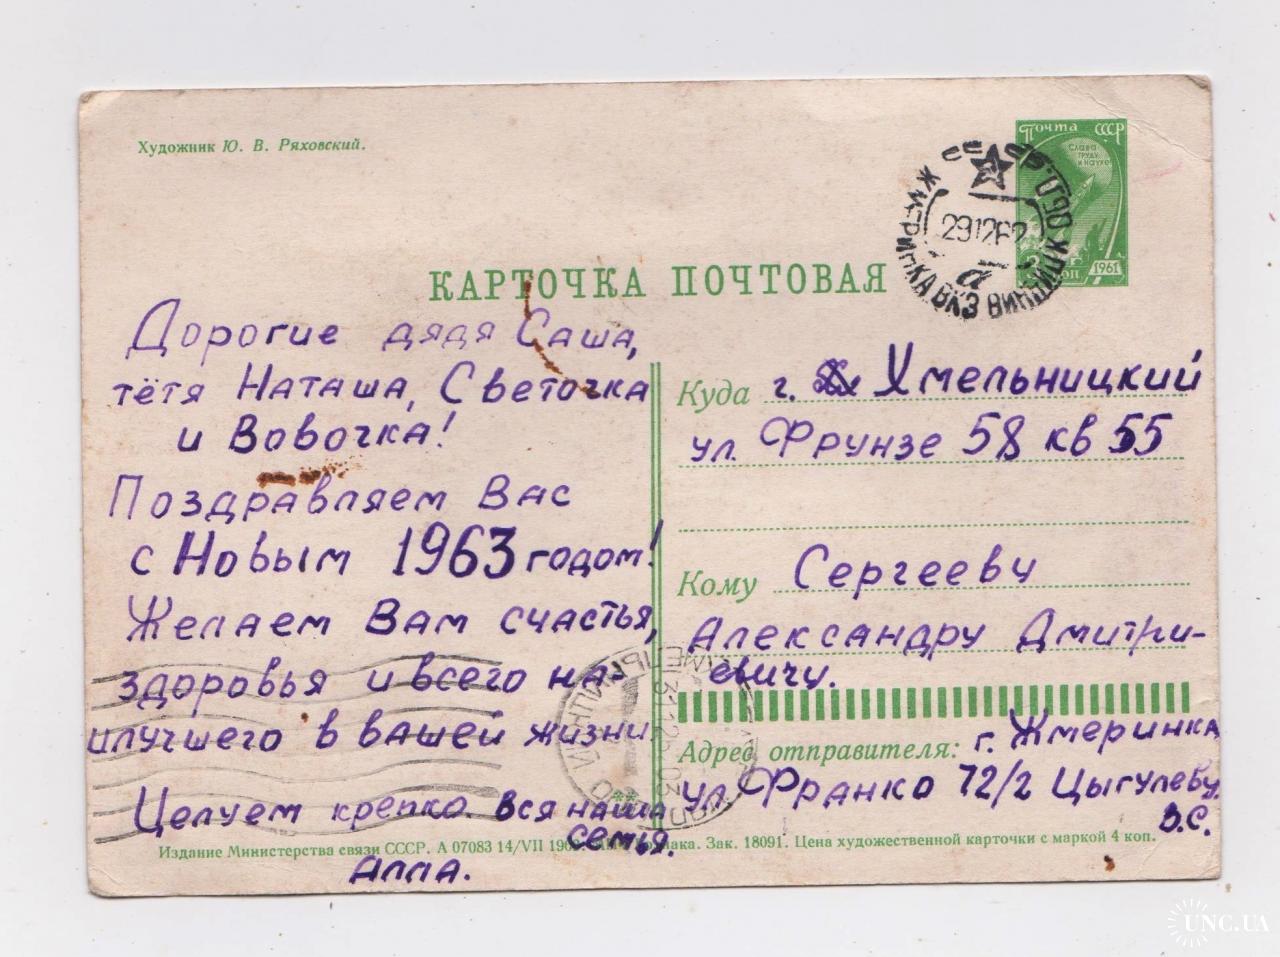 Художник Ю. В. Ряховский.
Почта СССР
Слава
труду
и науке
1961
ЖМЕРИНКА ВКЗ ВИННИЦК. ОБЛ.
291262
а
КАРТОЧКА ПОЧТОВАЯ
Дорогие дядя Саша,
тётя Наташа, Светочка
и Вовочка!
Поздравляем Вас
с Новым 1963 годом!
Желаем Вам счастья,
здоровья и всего на-
илучшего в вашей жизни
Целуем крепко. Вся наша
семья.
Алла.
Куда г. Хмельницкий
ул. Фрунзе 58 кв 55
Кому Сергееву
Александру Дмитри-
евичу.
Адрес отправителя: г. Жмеринка
ул Франко 72/2 Цыгулеву
В.С.
Издание Министерства связи СССР. А 07083 14/VII Зак. 18091. Цена художественной карточки с маркой 4 коп.
UNC.UA